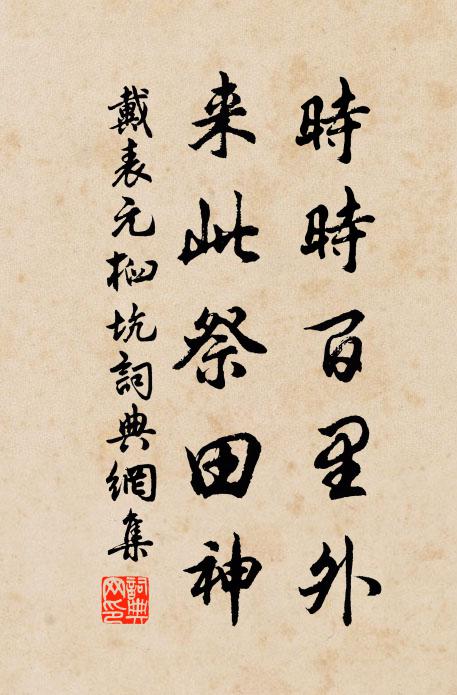 時時百里外
来此祭田神
戴表元柏坑詞典網集
詞典网印